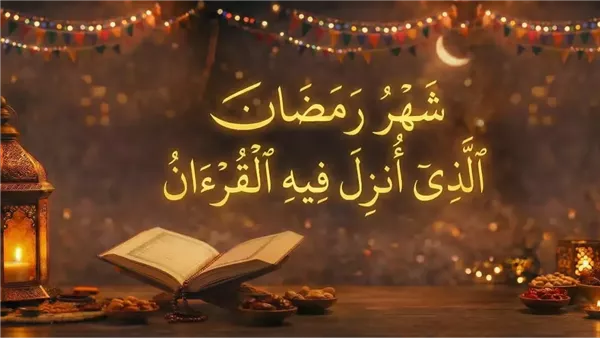 شَهْرُ رَمَضَانَ
ٱلَّذِىٓ أُنزِلَ فِيهِ ٱلْقُرْءَانُ